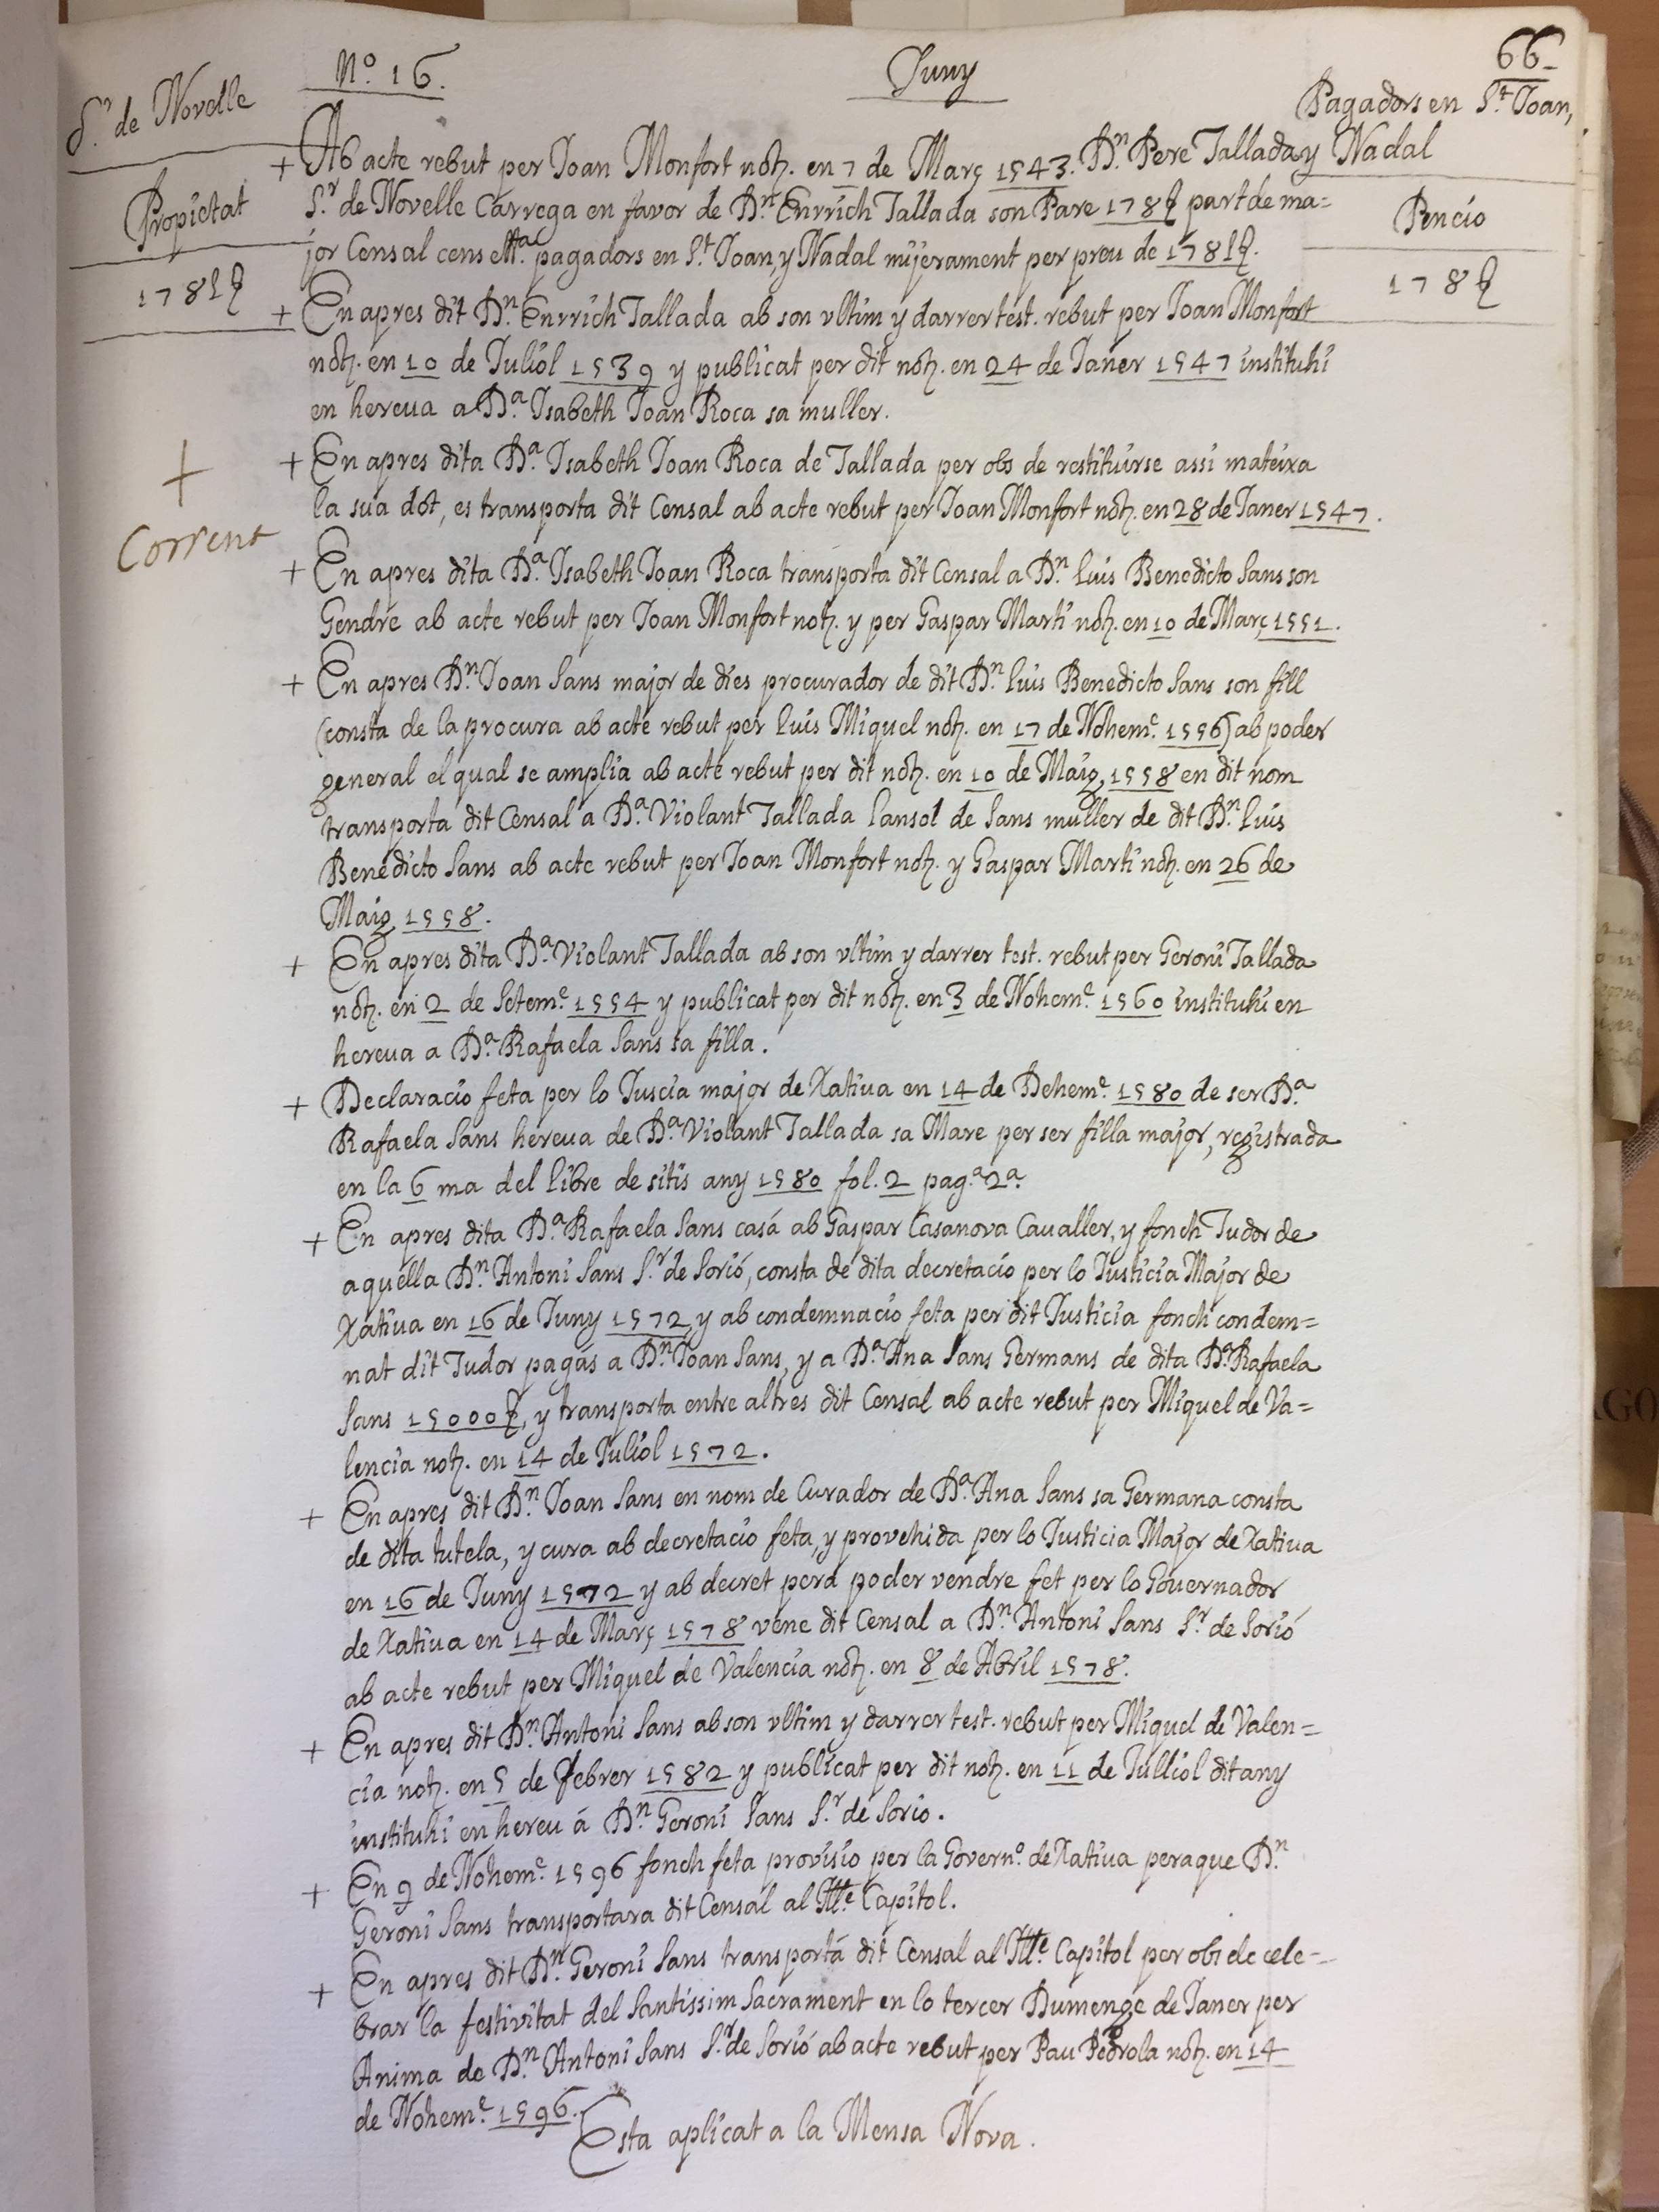 66
Nº. 16.
Juny
Sr. de Novelle
Pagadors en St. Joan,
y Nadal
Propietat
1781 ₤
Pencio
178 ₤
+
Corrent
+ Ab acte rebut per Joan Monfort noh. en 7 de Març 1543. Dn. Pere Tallada
Sr. de Novelle Carrega en favor de Dn. Enrrich Tallada son Pare 178 ₤ part de ma=
jor Censal cens Mta. pagadors en St. Joan, y Nadal mijerament per preu de 1781 ₤.
+ En apres dit Dn. Enrrich Tallada ab son ultim y darrer test. rebut per Joan Monfort
noh. en 10 de Juliol 1539 y publicat per dit noh. en 24 de Janer 1547 instituhi
en hereua a Da. Isabeth Joan Roca sa muller.
+ En apres dita Da. Isabeth Joan Roca de Tallada per obs de restituirse assi mateixa
la sua dot, es transporta dit Censal ab acte rebut per Joan Monfort noh. en 28 de Janer 1547.
+ En apres dita Da. Isabeth Joan Roca transporta dit Censal a Dn. Luis Benedicto Sans son
Gendre ab acte rebut per Joan Monfort noh. y per Gaspar Marti noh. en 10 de Març 1551.
+ En apres Dn. Joan Sans major de dies procurador de dit Dn. Luis Benedicto Sans son fill
(consta de la procura ab acte rebut per Luis Miquel noh. en 17 de Noheme. 1556) ab poder
general el qual se amplia ab acte rebut per dit noh. en 10 de Maig, 1558 en dit nom
transporta dit Censal a Da. Violant Tallada Lansol de Sans muller de dit Dn. Luis
Benedicto Sans ab acte rebut per Joan Monfort noh. y Gaspar Marti noh. en 26 de
Maig 1558.
+ En apres dita Da. Violant Tallada ab son ultim y darrer test. rebut per Geroni Tallada
noh. en 2 de Seteme. 1554 y publicat per dit noh. en 3 de Noheme. 1560 instituhi en
hereua a Da. Rafaela Sans sa filla.
+ Declaracio feta per lo Juscia major de Xativa en 14 de Deheme. 1580 de ser Da.
Rafaela Sans hereua de Da. Violant Tallada sa Mare per ser filla major, registrada
en la 6 ma del libre de sitis any 1580 fol. 2 paga. 2a.
+ En apres dita Da. Rafaela Sans casá ab Gaspar Casanova Caualler, y fonch Tudor de
aquella Dn. Antoni Sans Sr. de Sorió, consta de dita decretacio per lo Justicia Major de
Xativa en 16 de Juny 1572 y ab condemnacio feta per dit Justicia fonch condem=
nat dit Tudor pagás a Dn. Joan Sans, y a Da. Ana Sans Germans de dita Da. Rafaela
Sans 15000 ₤, y transporta entre altres dit Censal ab acte rebut per Miquel de Va=
lencia noh. en 14 de Juliol 1572.
+ En apres dit Dn. Joan Sans en nom de Curador de Da. Ana Sans sa Germana consta
de dita tutela, y cura ab decretacio feta, y provehida per lo Justicia Major de Xativa
en 16 de Juny 1572 y ab decret pera poder vendre fet per lo Governador
de Xativa en 14 de Març 1578 vene dit Censal a Dn. Antoni Sans Sr. de Sorió
ab acte rebut per Miquel de Valencia noh. en 8 de Abril 1578.
+ En apres dit Dn. Antoni Sans ab son ultim y darrer test. rebut per Miquel de Valen=
cia noh. en 5 de Febrer 1582 y publicat per dit noh. en 11 de Julliol dit any
instituhi en hereu á Dn. Geroni Sans Sr. de Sorio.
+ En 9 de Noheme. 1596 fonch feta provisio per la Governo. de Xativa peraque Dn.
Geroni Sans transportara dit Censal al Illte. Capitol.
+ En apres dit Dn. Geroni Sans transportá dit Censal al Illte. Capitol per obs de cele=
brar la festivitat del Santissim Sacrament en lo tercer Dumenge de Janer per
Anima de Dn. Antoni Sans Sr. de Sorió ab acte rebut per Pau Pedrola noh. en 14
de Noheme. 1596.
Esta aplicat a la Mensa Nova.